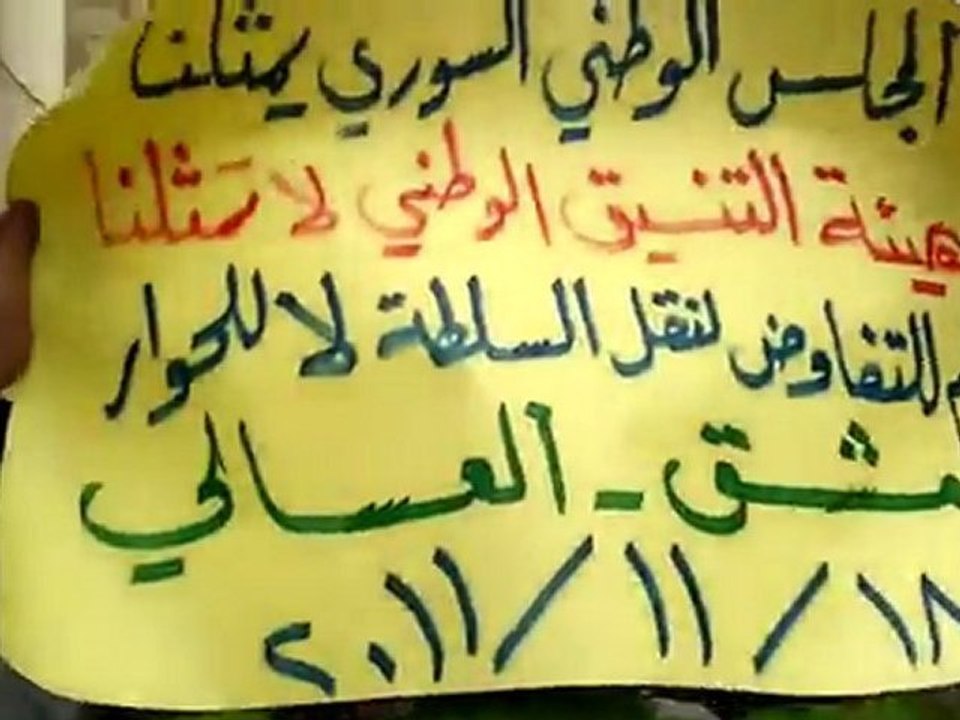 المجلس الوطني السوري يمثلنا
هيئة التنسيق الوطني لا تمثلنا
للتفاوض لنقل السلطة لا للحوار
دمشق - العسالي
١٨/١١/٢٠١١